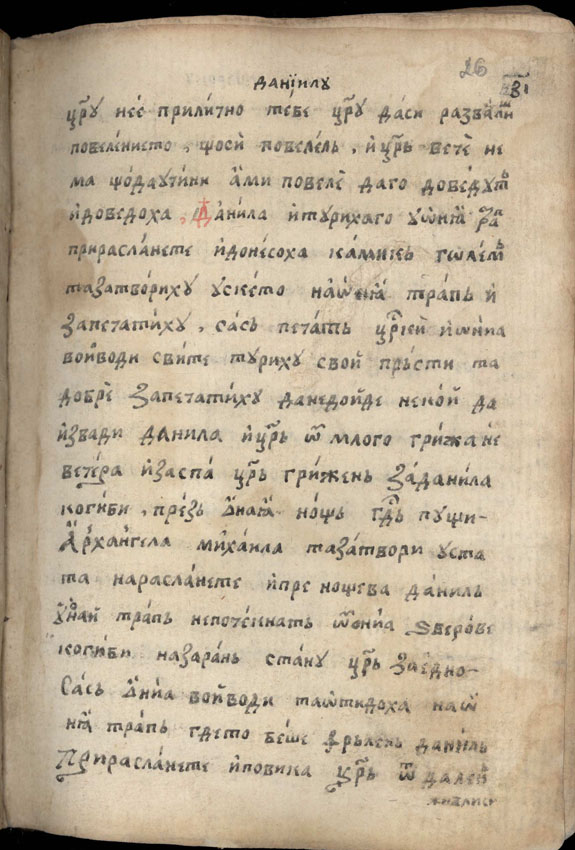 26
данїилу
зі
цр҃у несе прилично тебе цр҃у даси развалиш
повелението, що си повелелъ, и цр҃ь вече не
ма що да учини ами повеле даго доведутъ
и доведоха, данила и туриха го у ѡнїѧ трапъ
при расланете и донесоха камикъ големъ
та затвориху ускето на ѡнїѧ трапъ и
запечатиху, сасъ печатъ цр҃їей и ѡнїа
войводи свите туриху свой прьсти та
добре запечатиху да не дойде некой да
извади данила и цр҃ь ѿ млого грижа не
вечера и заспа цр҃ь грижень за данила
когиби, презъ ѡнаѧ нощь гд҃ь пущи
архангела михаила та затвори уста
та на расланете и пренощева данилъ
у ѡнай трапъ непотекнатъ ѿ ѡнїа ѕверове
когиби на заранъ стану цр҃ь заедно
сасъ ѡнїа войводи та ѡтидоха на ѡ
нїѧ трапъ гдето беше фрьленъ данилъ
при расланете и повика цр҃ь ѿ далеч